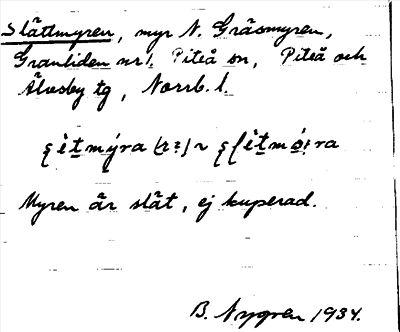 Slättmyren, myr N. Gräsmyren,
Granliden nr 1, Piteå sn, Piteå och
Älvsby tg, Norrb. l.
Myren är slät, ej kuperad.
B. Nygren 1934.